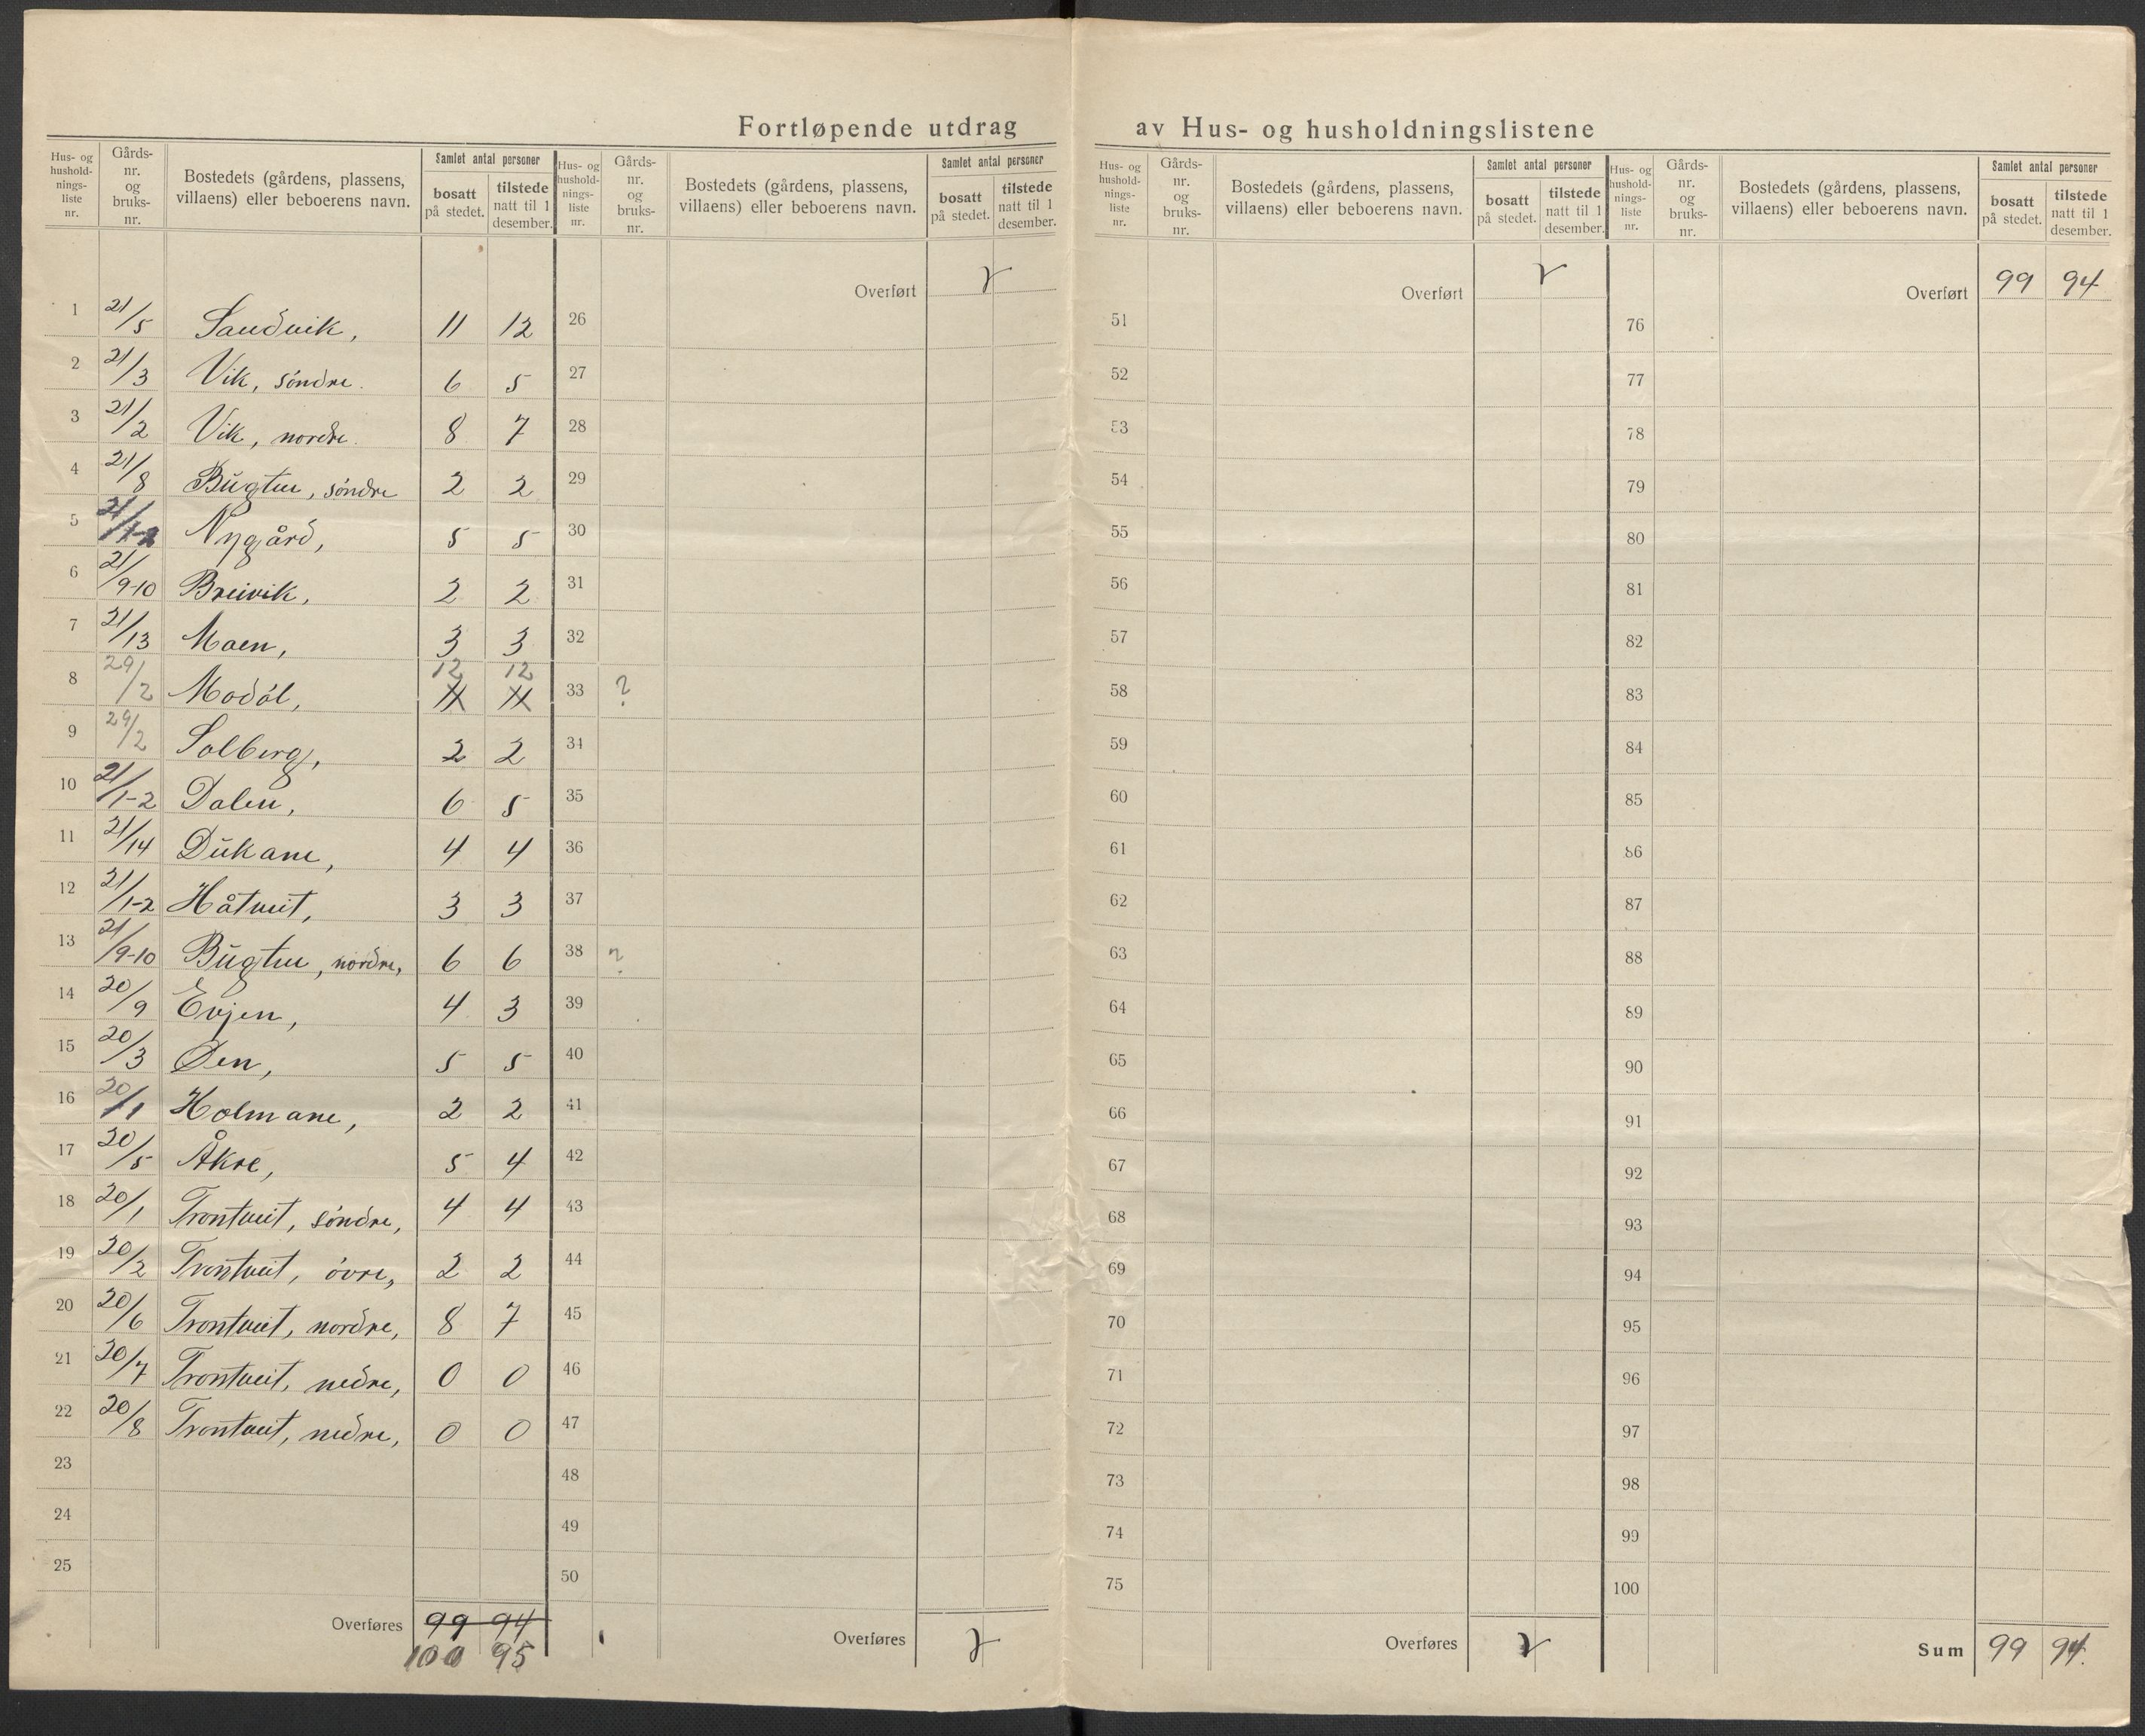 Fortløpende utdrag av Hus- og husholdningslistene
Hus- og hushold-nings-liste nr. Gårds-nr. og bruks-nr. Bostedets (gårdens, plassens, villaens) eller beboerens navn. Samlet antal personer bosatt på stedet. tilstede natt til 1 desember.
1 21/5 Sandvik, 11 12
2 21/3 Vik, søndre. 6 5
3 21/2 Vik, nordre. 8 7
4 21/8 Bugtur, søndre 2 2
5 21/1-2 Nygård, 5 5
6 21/9-10 Breivik, 2 2
7 21/13 Moen, 3 3
8 29/2 Modål, 12 12
9 29/2 Solberg, 2 2
10 21/1-2 Dalen, 6 5
11 21/14 Dukane, 4 4
12 21/1-2 Håtveit, 3 3
13 21/9-10 Bugtur, nordre, 6 6
14 20/9 Evjen, 4 3
15 20/3 Øen, 5 5
16 20/1 Holmane, 2 2
17 20/5 Åkre, 5 4
18 20/1 Trontveit, søndre, 4 4
19 20/2 Trontveit, övre, 2 2
20 20/6 Trontveit, nordre, 8 7
21 20/7 Trontveit, nedre, 0 0
22 20/8 Trontveit, nedre, 0 0
23
24
25
Overføres 99 94
100 95
Hus- og hushold-nings-liste nr. Gårds-nr. og bruks-nr. Bostedets (gårdens, plassens, villaens) eller beboerens navn. Samlet antal personer bosatt på stedet. tilstede natt til 1 desember.
Overført
26
27
28
29
30
31
32
33 ?
34
35
36
37
38 ?
39
40
41
42
43
44
45
46
47
48
49
50
Overføres
Hus- og hushold-nings-liste nr. Gårds-nr. og bruks-nr. Bostedets (gårdens, plassens, villaens) eller beboerens navn. Samlet antal personer bosatt på stedet. tilstede natt til 1 desember.
Overført
51
52
53
54
55
56
57
58
59
60
61
62
63
64
65
66
67
68
69
70
71
72
73
74
75
Overføres
Hus- og hushold-nings-liste nr. Gårds-nr. og bruks-nr. Bostedets (gårdens, plassens, villaens) eller beboerens navn. Samlet antal personer bosatt på stedet. tilstede natt til 1 desember.
Overført 99 94
76
77
78
79
80
81
82
83
84
85
86
87
88
89
90
91
92
93
94
95
96
97
98
99
100
Sum 99 94.